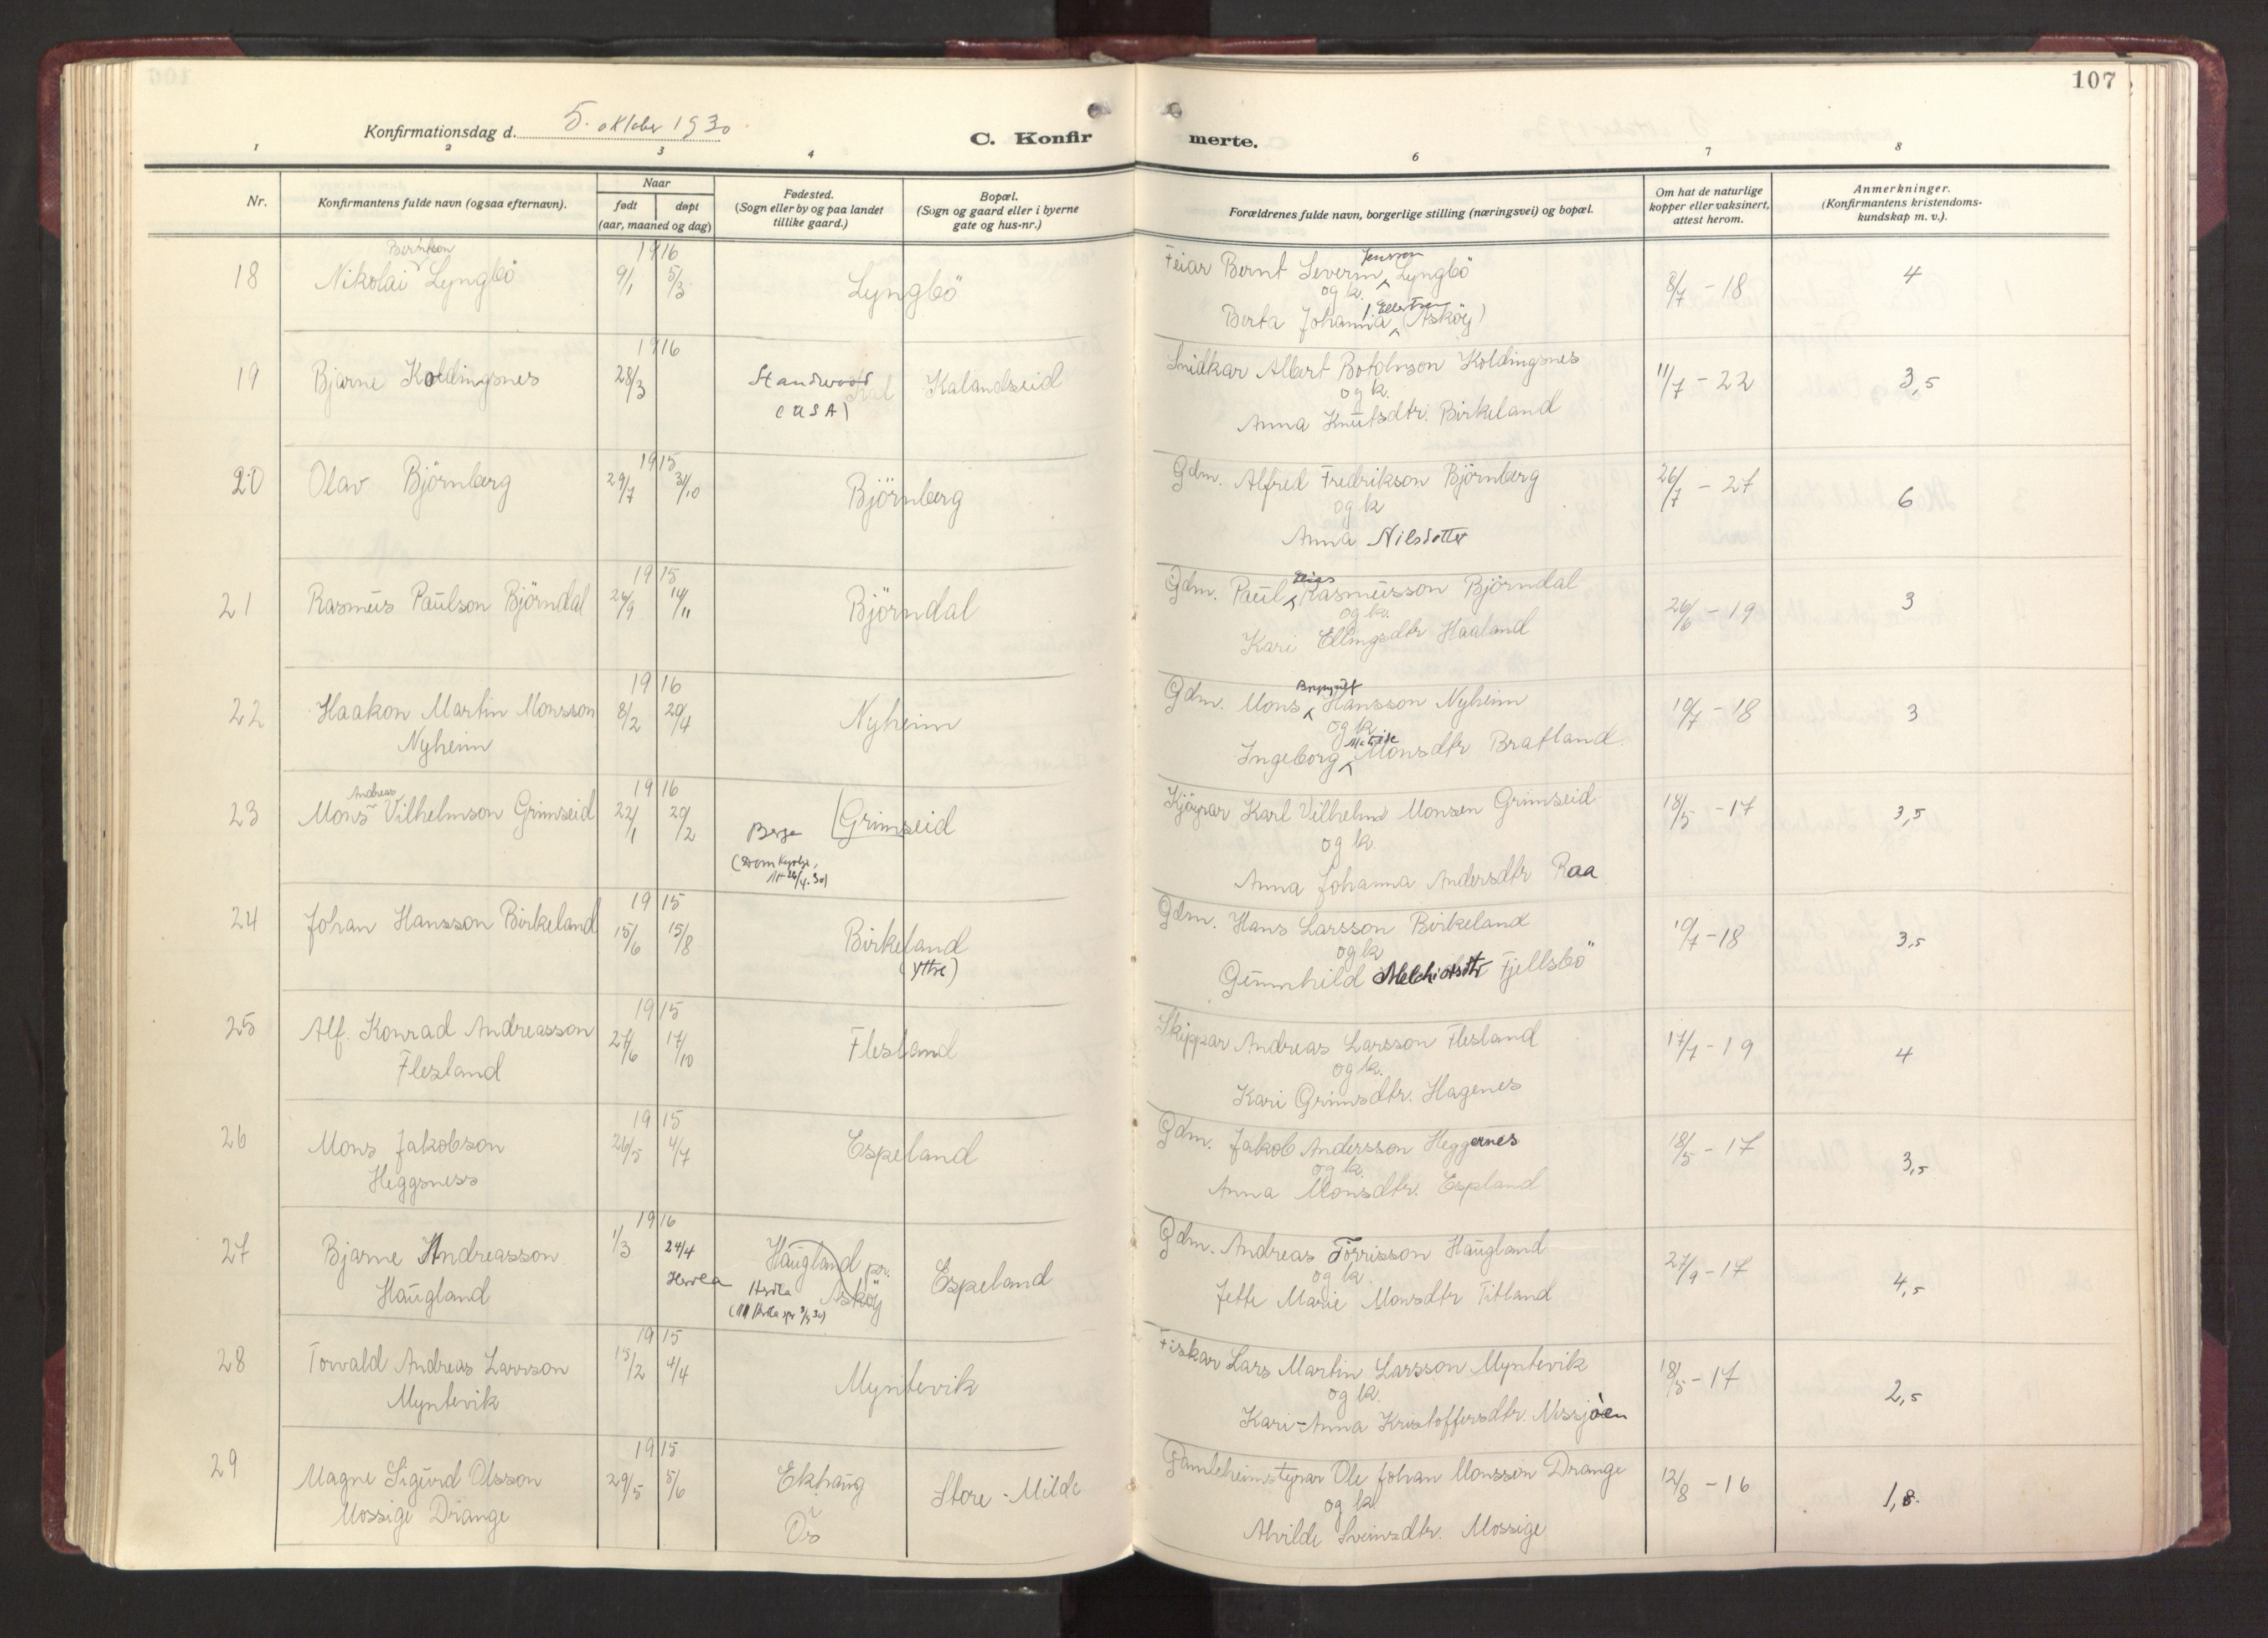 107
Konfirmationsdag d. 5. oktober 1930
C. Konfirmerte.
1 2 3 4 6 7 8
Nr.
Konfirmantens fulde navn (ogsaa efternavn).
Naar
født døpt
(aar, maaned og dag)
Fødested.
(Sogn eller by og paa landet
tillike gaard.)
Bopæl.
(Sogn og gaard eller i byerne
gate og hus-nr.)
Forældrenes fulde navn, borgerlige stilling (næringsvei) og bopæl.
Om hat de naturlige
kopper eller vaksinert,
attest herom.
Anmerkninger.
(Konfirmantens kristendoms-
kundskap m. v.).
1916
18 Nikolai Berntson Lyngbö 9/1 5/3 Lyngbö
Feiar Bernt Severin Jensson Lyngbö
og k.
Berta Johanna f. Ellertsen (Askøy)
8/7 - 18 4
1916
19 Bjarne Koldingsnes 28/3 Standwood (USA) Kalandseid
Snidkar Albert Botolvson Koldingsnes
og k.
Anna Knutsdtr. Birkeland
11/7 - 22 3,5
1915
20 Olav Björnberg 29/7 31/10 Björnberg
Gdm. Alfred Fredrikson Björnberg
og k
Anna Nilsdotter
26/7 - 27 6
1915
21 Rasmus Paulson Björndal 26/9 14/11 Björndal
Gdm. Paul Elias Rasmusson Björndal
og k.
Kari Ellingsdtr Haaland
26/6 - 19 3
1916
22 Haakon Martin Monsson 8/2 20/4 Nyheim
Nyheim
Gdm. Mons Hansson Nyheim
og k
Ingeborg Monsdtr Bratland
10/7 - 18 3
1916
23 Mons Andreas Vilhelmson Grimseid 22/1 20/2 Grimseid
Kjöyrar Karl Vilhelm Monsen Grimseid
og k.
Anna Johanna Andersdtr Raa
18/5 - 17 3,5
1915
24 Johan Hansson Birkeland 15/6 15/8 Birkeland
(Yttre)
Gdm. Hans Larsson Birkeland
og k
Gunnhild Melchiorsdtr Fjellsbö
10/7 - 18 3,5
1915
25 Alf. Konrad Andreasson 27/6 17/10 Flesland
Flesland
Skippar Andreas Larsson Flesland
og k.
Kari Grimsdtr. Hagenes
17/7 - 19 4
1915
26 Mons Jakobson 26/5 4/7 Espeland
Heggsness
Gdm. Jakob Andersson Heggernes
og k.
Anna Monsdtr. Espland
18/5 - 17 3,5
1916
27 Bjarne Andreasson 1/3 24/4 Haugland pr. Askøy Espeland
Haugland Herdla Herdla
Gdm. Andreas Torrisson Haugland
og k
Jette Marie Monsdtr Titland
27/9 - 17 4,5
1915
28 Torvald Andreas Larsson 15/2 4/4 Myntevik
Myntevik
Fiskar Lars Martin Larsson Myntevik
og k.
Kari-Anna Kristoffersdtr.
18/5 - 17 2,5
1915
29 Magne Sigurd Olsson 29/5 5/6 Ekhaug i Os Store - Milde
Mossige Drange
Gamleheimstyrar Ole Johan Monsson Drange
og k
Alvilde Sveinsdtr. Mossige
12/8 - 16 1,8.